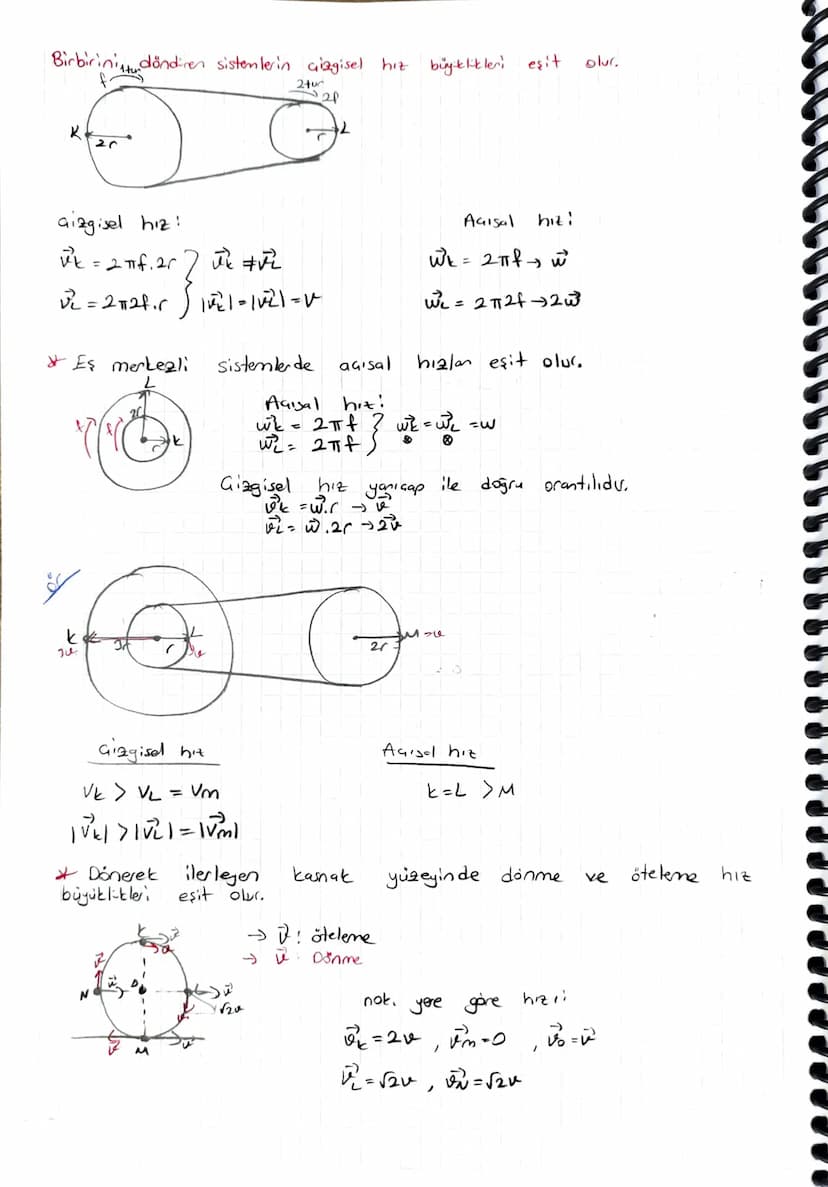 Birbirini döndüren sistemlerin çizgisel hız büyüklükleri eşit olur.
1tur
f
2tur
2f
K
2r
r
L
Çizgisel hız:
Açısal hız:
v⃗k = 2πf.2r } v⃗k ≠ v⃗L
w⃗k = 2πf → w⃗
v⃗L = 2π2f.r } |v⃗k| = |v⃗L| = v
w⃗L = 2π2f → 2w⃗
* Eş merkezli sistemlerde açısal hızları eşit olur.
L
2r
f f
r
K
Açısal hız:
w⃗k = 2πf } w⃗k = w⃗L = w
w⃗L = 2πf } ⊗ ⊗
Çizgisel hız yarıçap ile doğru orantılıdır.
v⃗k = w⃗.r → v⃗
v⃗L = w⃗.2r → 2v⃗
ör
K
3v
3r
r
L
v
M → v
2r
Çizgisel hız
Açısal hız
Vk > VL = Vm
k = L > M
|V⃗k| > |V⃗L| = |V⃗m|
* Dönerek ilerleyen kasnak yüzeyinde dönme ve öteleme hız
büyüklükleri eşit olur.
K v⃗
v⃗
→ v⃗ : öteleme
→ v⃗ : Dönme
v⃗
N v⃗ O v⃗
v⃗ √2v
v⃗ M v⃗
nok. yere göre hızı:
v⃗k = 2v , v⃗m = 0 , v⃗o = v⃗
v⃗L = √2v , v⃗N = √2v